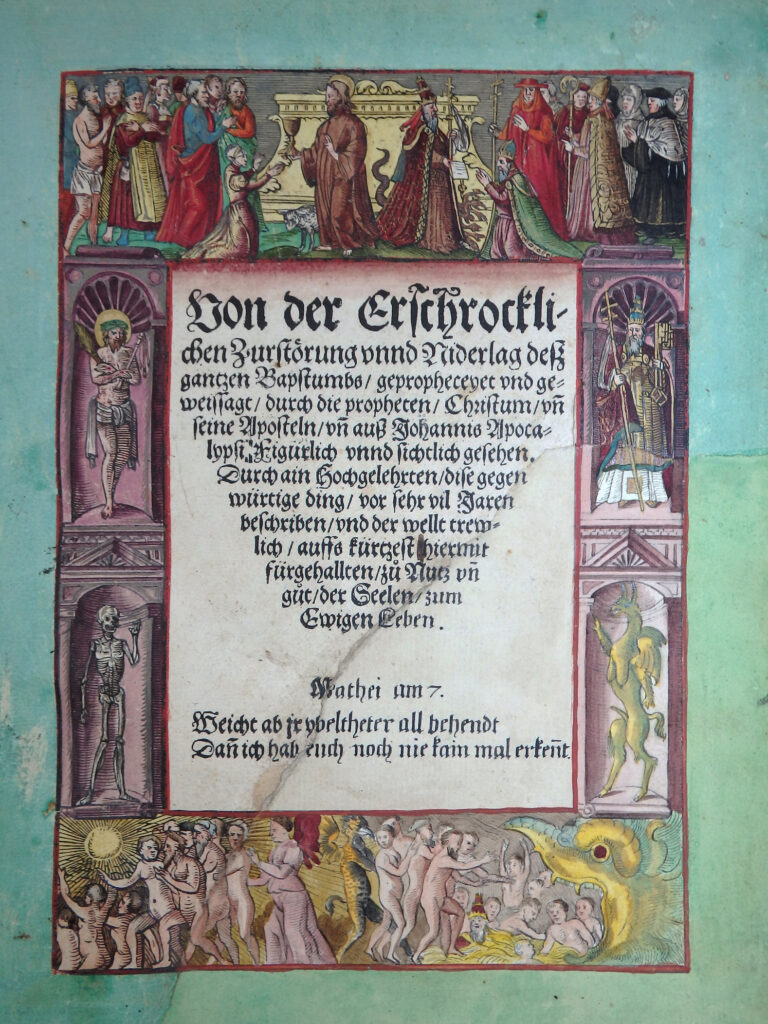 Von der Erschrockli-
chen Zurstörung vnnd Niderlag deß
gantzen Bapstumbs/ gepropheceyet vnd ge-
weissagt/ durch die propheten/ Christum/ vn̄
seine Aposteln/ vn̄ auß Johannis Apoca-
lypsi Figürlich vnnd sichtlich gesehen.
Durch ain Hochgelehrten/ dise gegen
würtige ding/ vor sehr vil Jaren
beschriben/ vnd der wellt trew-
lich/ auffs kürtzest hiermit
fürgehallten/ zů Nutz vn̄
gůt/ der Seelen/ zum
Ewigen Leben.
Mathei am 7.
Weicht ab jr vbeltheter all behendt
Dan̄ ich hab euch noch nie kain mal erken̄t.